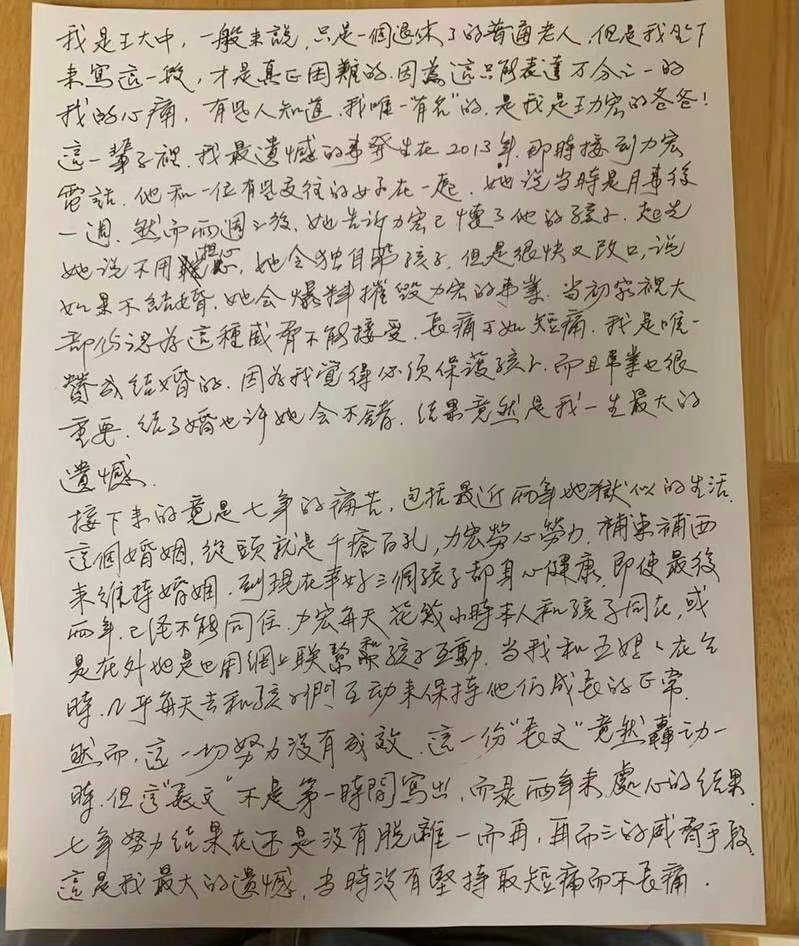 我是王大中，一般來說，只是一個退休了的普通老人，但是我坐下
來寫這一般，才是真正困難的，因為這只能表達万分之一的
我的心痛，有些人知道，我唯一"有名"的，是我是王力宏的爸爸！
這一輩子裡，我最遺憾的事發生在2013年，那時接到力宏
電話，他和一位有些交往的女子在一起，她說当時是月事後
一週，然而兩週之後，她告訴力宏已懷了他的孩子，起先
她說不用担心，她会獨自帶孩子，但是很快又改口，說
如果不結婚，她会爆料摧毀力宏的事業，当初家裡大
部份認為這種威脅不能接受，長痛不如短痛，我是唯一
贊成結婚的，因為我覺得必須保護孩子，而且事業也很
重要，結了婚也許她会不錯，結果竟然是我一生最大的
遺憾，
接下來的竟是七年的痛苦，包括最近兩年地獄似的生活，
這個婚姻，從頭就是千瘡百孔，力宏勞心勞力，補東補西
來維持婚姻，到現在幸好三個孩子都身心健康，即使最後
兩年，已經不能同住，力宏每天花數小時本人和孩子同在，或
是在外地是也用網上联繫和孩子互動，当我和王媽媽在台
時，几乎每天去和孩子們互动來保持他们成長的正常，
然而，這一切努力沒有成效，這一份"長文"竟然轟动一
時，但這"長文"不是第一時間寫出，而是兩年來處心的結果，
七年努力結果在还是沒有脱離一而再，再而三的威脅手段，
這是我最大的遺憾，当時沒有堅持取短痛而不長痛．